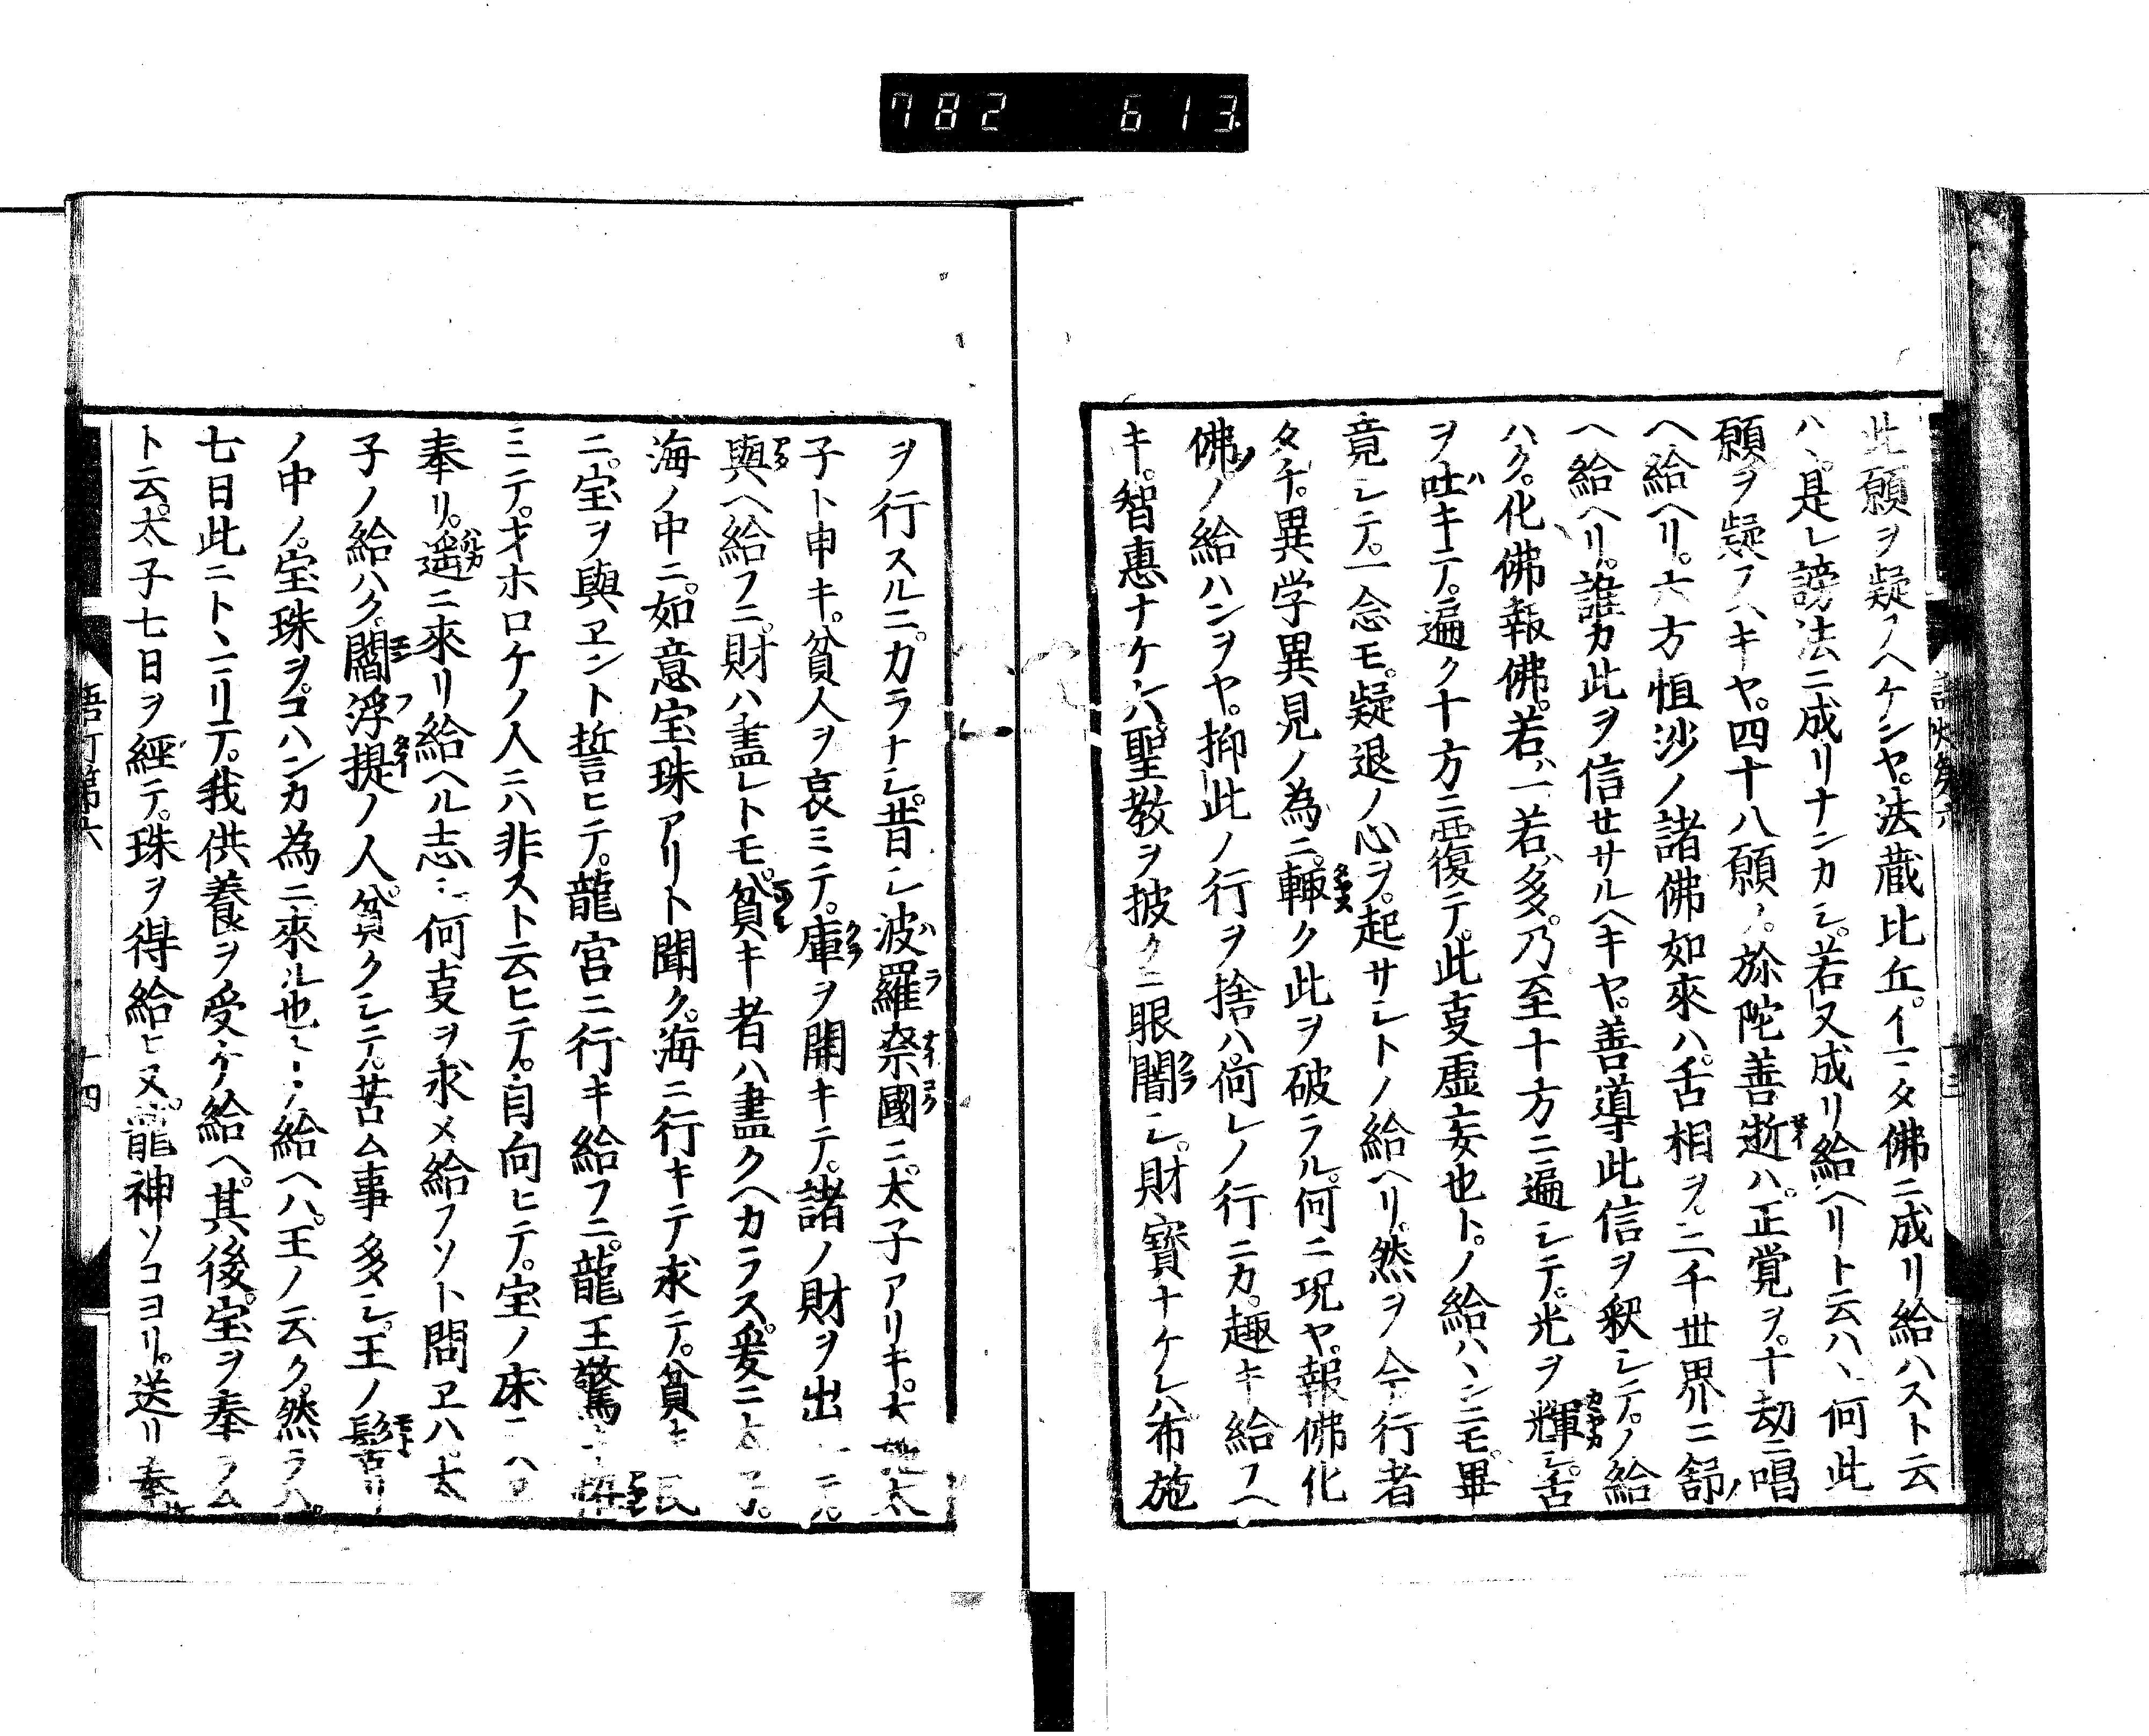 782 613
此願ヲ疑フヘケンヤ。法蔵比丘。イマタ佛ニ成リ給ハスト云
ハヽ。是レ謗法ニ成リナンカシ。若又成リ給ヘリト云ハヽ何此
願ヲ疑フヘキヤ。四十八願ノ。旀陀善逝ハ。正覚ヲ。十劫ニ唱
ヘ給ヘリ。六方恒沙ノ諸佛如來ハ。舌相ヲ。三千世界ニ舒
ヘ給ヘリ。誰カ此ヲ信セサルヘキヤ。善導此信ヲ釈シテノ給
ハク。化佛報佛。若一若多。乃至十方ニ遍シテ。光ヲ輝シ。舌
ヲ吐キテ。遍ク十方ニ覆テ。此叓虚妄也ト。ノ給ハンニモ。畢
竟シテ。一念モ。疑退ノ心ヲ。起サシトノ給ヘリ。然ヲ今行者
タチ。異学異見ノ為ニ。輙ク此ヲ破ラル。何ニ况ヤ。報佛化
佛ノノ給ハンヲヤ。抑此ノ行ヲ捨ハ。何レノ行ニカ。趣キ給フヘ
キ。智惠ナケレハ。聖教ヲ披クニ眼闇シ。財寳ナケレハ布施
ヲ行スルニ。カラナシ。昔シ波羅奈國ニ。太子アリキ。大 太
子ト申キ。貧人ヲ哀ミテ。庫ヲ開キテ。諸ノ財ヲ出 テ。
與ヘ給フニ。財ハ盡レトモ。貧キ者ハ盡クヘカラス。爰ニ太子。
海ノ中ニ。如意宝珠アリト聞ク。海ニ行キテ求テ。貧キ民
ニ。宝ヲ與エント誓ヒテ。龍宮ニ行キ給フニ。龍王驚
ミテ。オホロケノ人ニハ非スト云ヒテ。自向ヒテ。宝ノ床ニ
奉リ。遥ニ來リ給ヘル志シ何叓ヲ求メ給フソト問エハ。太
子ノ給ハク。閻浮提ノ人貧クシテ。苦ム事多シ。王ノ髻リ
ノ中ノ。宝珠ヲ。コハンカ為ニ來ル也トノ給ヘハ。王ノ云ク。然ラハ。
七日此ニトヽマリテ。我供養ヲ受ケ給ヘ。其後宝ヲ奉ラム
ト云。太子七日ヲ經テ。珠ヲ得給ヒヌ。龍神ソコヨリ。送リ奉
語灯第六
十四